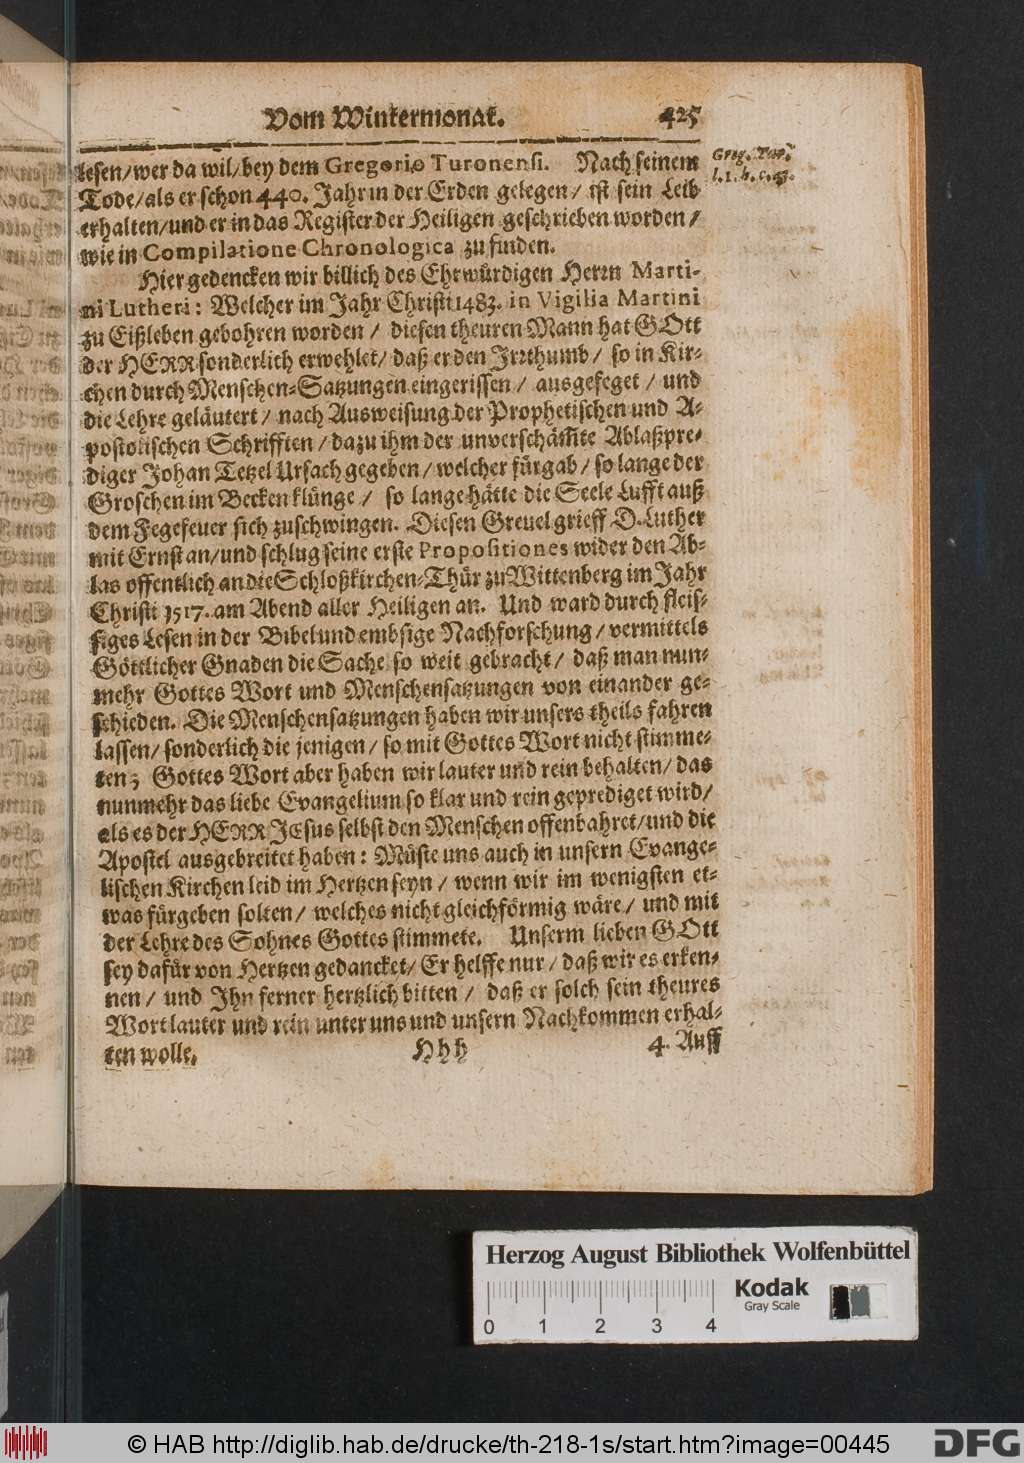 Vom Wintermonat. 425
lesen/wer da wil/bey dem Gregorio Turonensi. Nach seinem
Greg. Tur.
l. 1. h. c. 43.
Tode/als er schon 440. Jahr in der Erden gelegen/ ist sein Leib
erhalten/und er in das Register der Heiligen geschrieben worden/
wie in Compilatione Chronologica zu finden.
Hier gedencken wir billich des Ehrwürdigen Herrn Marti-
ni Lutheri: Welcher im Jahr Christi 1483. in Vigilia Martini
zu Eißleben gebohren worden/ diesen theuren Mann hat GOtt
der HERR sonderlich erwehlet/ daß er den Irrthumb/ so in Kir-
chen durch Menschen-Satzungen eingerissen/ ausgefeget/ und
die Lehre geläutert/ nach Ausweisung der Prophetischen und A-
postolischen Schrifften/dazu ihm der unverschämte Ablaßpre-
diger Johan Tetzel Ursach gegeben/welcher fürgab/so lange der
Groschen im Becken klünge/ so lange hätte die Seele Lufft auß
dem Fegefeuer sich zuschwingen. Diesen Greuel grieff D. Luther
mit Ernst an/und schlug seine erste Propositiones wider den Ab-
las offentlich an die Schloßkirchen-Thür zu Wittenberg im Jahr
Christi 1517. am Abend aller Heiligen an. Und ward durch fleis-
siges Lesen in der Bibel und embsige Nachforschung/vermittels
Göttlicher Gnaden die Sache so weit gebracht/ daß man nun-
mehr Gottes Wort und Menschensatzungen von einander ge-
schieden. Die Menschensatzungen haben wir unsers theils fahren
lassen/sonderlich die jenigen/so mit Gottes Wort nicht stimme-
ten; Gottes Wort aber haben wir lauter und rein behalten/das
nunmehr das liebe Evangelium so klar und rein geprediget wird/
als es der HERR JEsus selbst den Menschen offenbahret/und die
Apostel ausgebreitet haben: Müste uns auch in unsern Evange-
lischen Kirchen leid im Hertzen seyn/ wenn wir im wenigsten et-
was fürgeben solten/ welches nicht gleichförmig wäre/ und mit
der Lehre des Sohnes Gottes stimmete. Unserm lieben GOtt
sey dafür von Hertzen gedancket/ Er helffe nur/daß wir es erken-
nen/ und Ihn ferner hertzlich bitten/ daß er solch sein theures
Wort lauter und rein unter uns und unsern Nachkommen erhal-
ten wolle. Hhh 4. Auff
Herzog August Bibliothek Wolfenbüttel
Kodak
Gray Scale
0 1 2 3 4
© HAB http://diglib.hab.de/drucke/th-218-1s/start.htm?image=00445
DFG